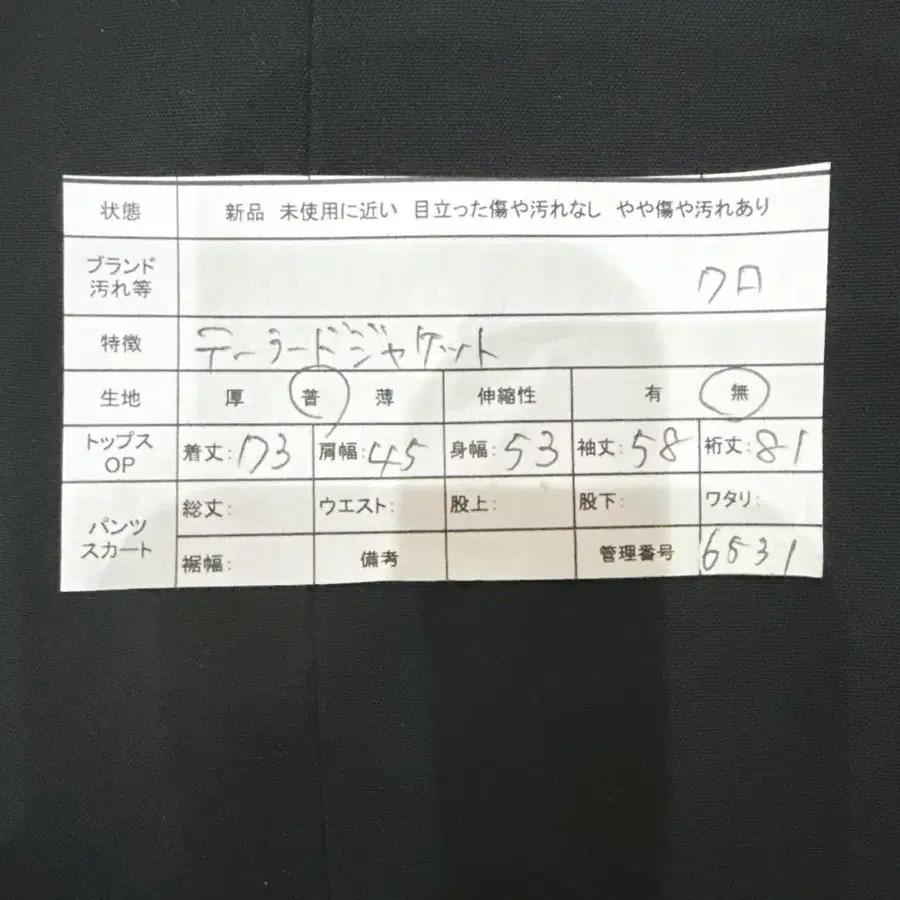 状態 新品 未使用に近い 目立った傷や汚れなし やや傷や汚れあり
ブランド
汚れ等
クロ
特徴 テーラードジャケット
生地 厚 普 薄 伸縮性 有 無
トップス
OP
着丈:73 肩幅:45 身幅:53 袖丈:58 裄丈:81
パンツ
スカート
総丈: ウエスト: 股上: 股下: ワタリ:
裾幅: 備考 管理番号 6531